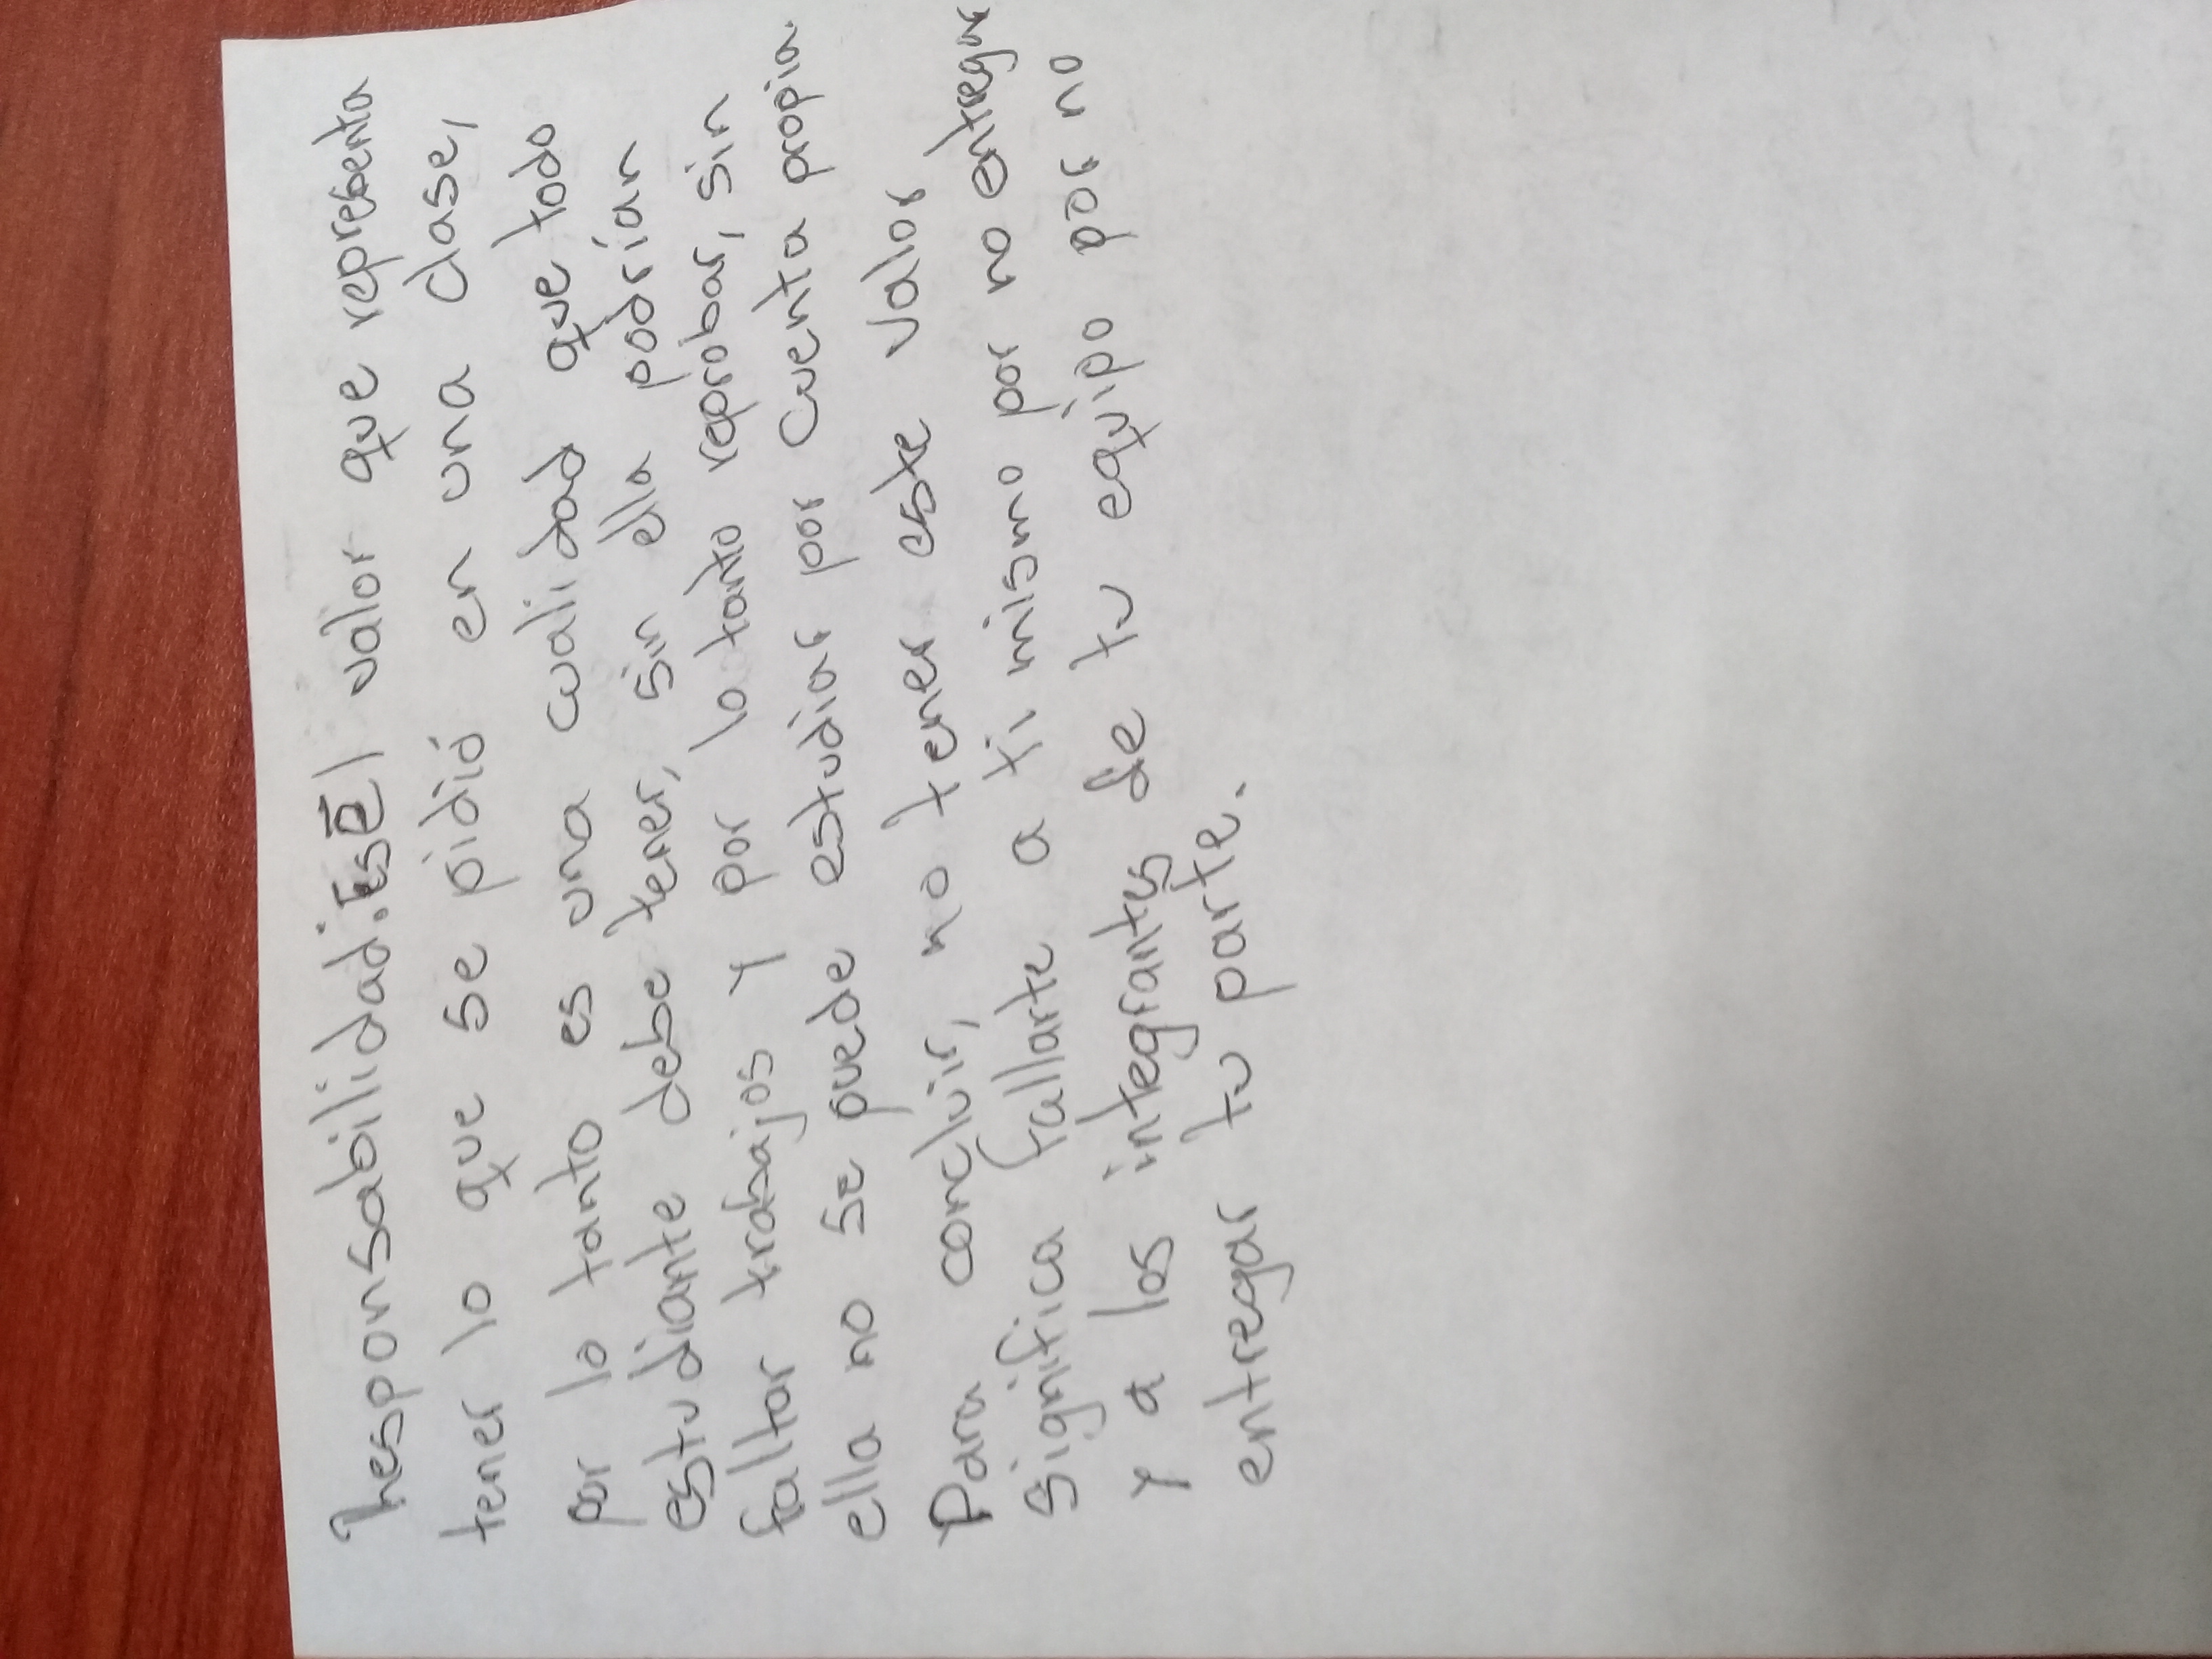 Responsabilidad: Es El valor que representa
tener lo que se pidió en una clase,
por lo tanto es una cualidad que todo
estudiante debe tener, sin ella podrían
falltar trabajos y por lo tanto reprobar, sin
ella no se puede estudiar por cuenta propia.
Para concluir, no tener este valor
significa fallarte a ti mismo por no entregar
y a los integrantes de tu equipo por no
entregar tu parte.